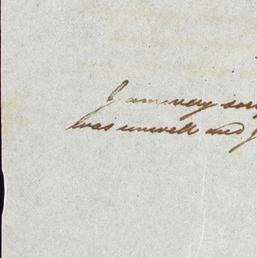 I am very sorry
was unwell and